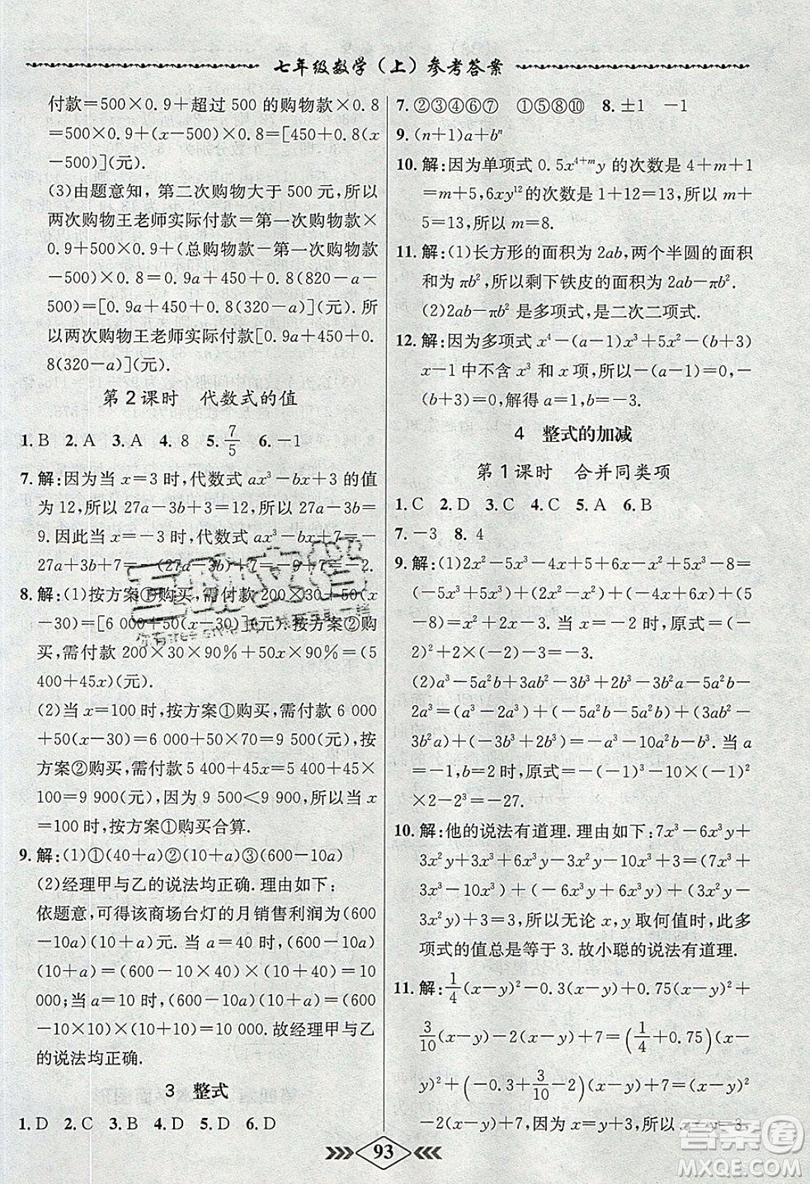 七年级数学(上)参考答案
付款=500×0.9+超过 500 的购物款×0.8
=500×0.9+(x-500)×0.8=[450+0.8(x
-500)](元).
(3)由题意知,第二次购物大于 500 元,所以
两次购物王老师实际付款=第一次购物款×
0.9+500×0.9+(总购物款-第一次购物款
-500)×0.8=0.9a+450+0.8(820-a-
500)=[0.9a+450+0.8(320-a)](元).所
以两次购物王老师实际付款[0.9a+450+
0.8(320-a)](元).
第2课时 代数式的值
1. B 2. A 3. A 4. 8 5. 7/5 6. -1
7. 解:因为当 x=3 时,代数式 ax³-bx+3 的值
为 12,所以 27a-3b+3=12,所以 27a-3b=
9.因此当 x=-3 时,ax³-bx+7=-
27a+3b+7=-(27a-3b)+7=-9+7=-2.
8. 解:(1)按方案①购买,需付款 200×30+50(x
-30)=[6 000+50(x-30)]元;按方案②购
买,需付款 200×30×90%+50x×90%=(5
400+45x)(元).
(2)当 x=100 时,按方案①购买,需付款 6 000
+50(x-30)=6 000+50×70=9 500(元);按
方案②购买,需付款 5 400+45x=5 400+45
×100=9 900(元),因为 9 500<9 900,所以当 x
=100 时,按方案①购买合算.
9. 解:(1)①(40+a) ②(10+a) ③(600-10a)
(2)经理甲与乙的说法均正确.理由如下:
依题意,可得该商场台灯的月销售利润为(600
-10a)(10+a)元.当 a=40 时,(600-
10a)(10+a)=(600-10×40)×(10+40)=
10 000;当 a=10 时,(600-10a)(10+a)=(600
-10×10)×(10+10)=10 000.故经理甲与乙
的说法均正确.
3 整式
1. D 2. C 3. A 4. D 5. D 6. D
7. ②③④⑥⑦⑨ ①⑤⑧⑩ 8. ±1 -1
9. (n+1)a+bⁿ
10. 解:因为单项式 0.5x⁴⁺ᵐy 的次数是 4+m+
1=m+5,6xy¹²的次数是 1+12=13,所以 m+
5=13,所以 m=8.
11. 解:(1)长方形的面积为 2ab,两个半圆的面积
和是 πb²,所以剩下铁皮的面积为 2ab-πb².
(2)2ab-πb² 是多项式,是二次二项式.
12. 解:因为多项式 x⁴-(a-1)x³+5x²-(b+3)
x-1 中不含 x³ 和 x 项,所以-(a-1)=0,
-(b+3)=0,解得 a=1,b=-3.
4 整式的加减
第1课时 合并同类项
1. C 2. D 3. C 4. C 5. A 6. B
7. -3 8. 4
9. 解:(1)2x²-5x³-4x-x²+5x³-5x-8=
(-5x³+5x³)+(2x²-x²)+(-4x-5x)+
(-8)=x²-9x-8.当 x=-
5 时,原式=
(-2)²-9×(-2)-8=-3.
(2)a²-5b²-3a³-5b²-a²-2a³=(a²-a²)+(-
5b²-5b²)+(-3a³-2a³)=-10b²-5a³.当 a=
-1,b=-2 时,原式=
×2²=-27.
10. 解:他的说法有道理.理由如下:7x³-6x³y+
3x²y+3x³+6x³y-3x²y-10x³+3=(7x³+
3x³-10x³)+(-6x³y+6x³y)+(3x²y-
3x²y)+3=3.所以无论 x,y 取何值时,此多
项式的值总是等于 3.故小聪的说法有道理.
11. 解:1/4(x-y)-0.3(x-y)+0.75(x-y)²+
3/10(x-y)-2(x-y)+7=(1/4+0.75)(x-
y)²+(-0.3+3/10-2)(x-y)+7=(x-y)²
93
答案圈
MXQE.COM